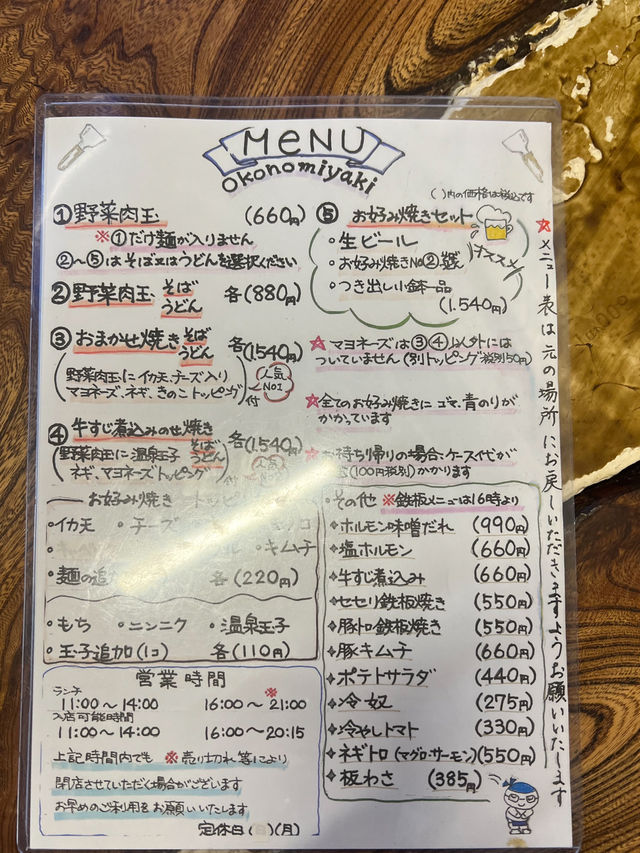 MENU
okonomiyaki
( )内の価格は税込です
①野菜肉玉 (660円)
※①だけ麺が入りません
②〜⑤はそば又はうどんを選択ください
②野菜肉玉 そば うどん 各(880円)
③おまかせ焼き そば うどん 各(1540円)
(野菜肉玉にイカ天、チーズ入り
マヨネーズ、ネギ、きのこトッピング)付
人気NO1
④牛すじ煮込みのせ焼き
(野菜肉玉に温泉玉子 そば うどん 各(1.540円)
ネギ、マヨネーズトッピング)付
人気NO1
⑤お好み焼きセット
・生ビール
・お好み焼きNo②
・つき出し小鉢一品
オススメ
(1.540円)
☆マヨネーズは③④以外には
ついていません(別トッピング税別50円)
☆全てのお好み焼きにゴマ、青のりが
かかっています
お持ち帰りの場合、ケース代が
(100円税別)かかります
お好み焼き
・イカ天 ・チーズ
・キムチ
・麺の追加 各(220円)
・もち ・ニンニク ・温泉玉子
・玉子追加(1コ) 各(110円)
営業時間
ランチ ※
11:00〜14:00 16:00〜21:00
入店可能時間
11:00〜14:00 16:00〜20:15
上記時間内でも ※売り切れ等により
閉店させていただく場合がございます
お早めのご利用をお願いいたします
定休日 (月)
その他 ※鉄板メニューは16時より
❖ホルモン味噌だれ (990円)
❖塩ホルモン (660円)
❖牛すじ煮込み (660円)
❖セセリ鉄板焼き (550円)
❖豚トロ鉄板焼き (550円)
❖豚キムチ (660円)
❖ポテトサラダ (440円)
❖冷奴 (275円)
❖冷やしトマト (330円)
❖ネギトロ(マグロ・サーモン)(550円)
❖板わさ (385円)
☆メニュー表は元の場所にお戻しいただきますようお願いいたします